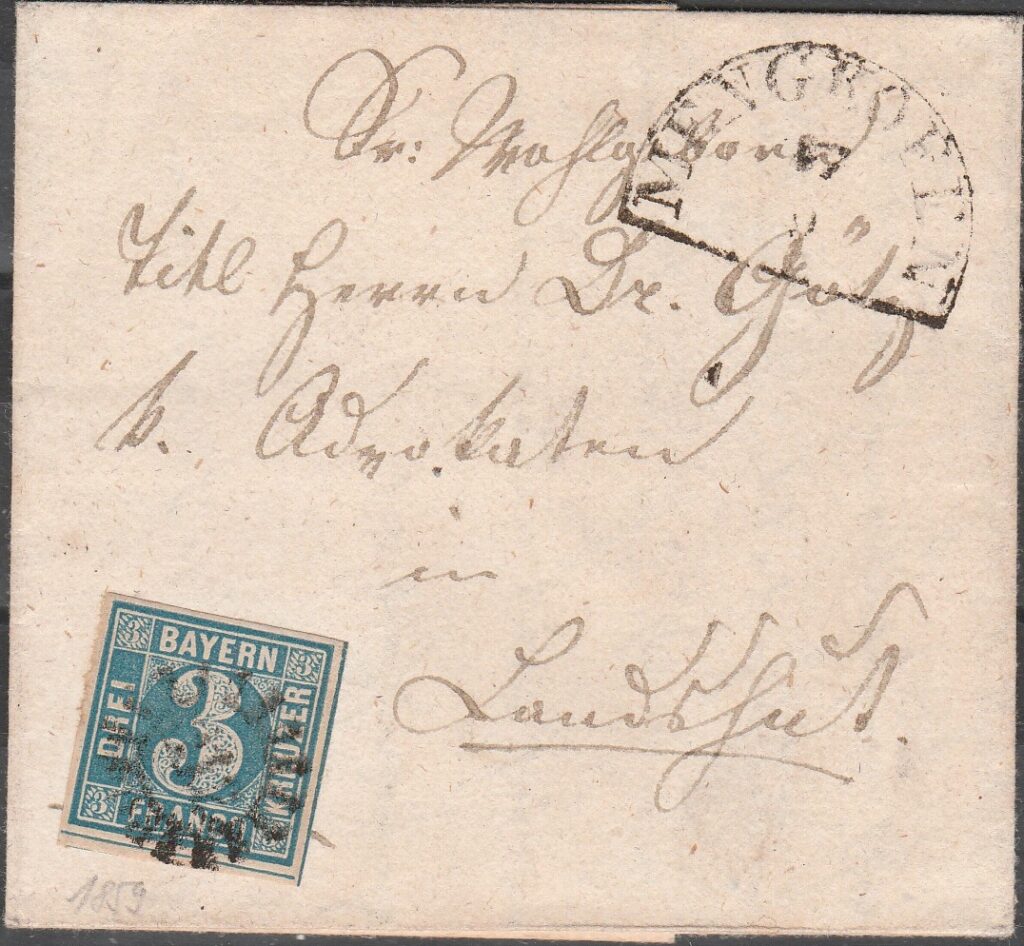 MENGKOFEN
Sr: Wohlgeboren
Titl Herrn Dr. Götz
k. Advokaten
in
Landshut.
3 3
BAYERN
DREI
3
KREUZER
3
FRANCO
1859